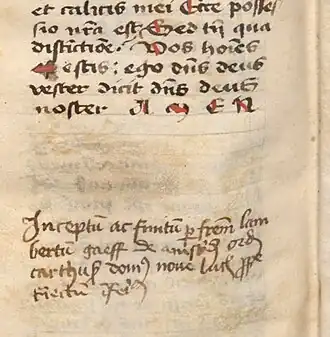 et calicis mei Ecce posses
sio nr̄a est Sed tn̄ qua
distinctione. Vos hoīes
estis: ego dn̄s deus
vester dicit dn̄s deus
noster A M E N
Inceptū ac finitū p frēm lam
bertū gaeff de amsterd ord
carthus domꝰ nove luc ppe